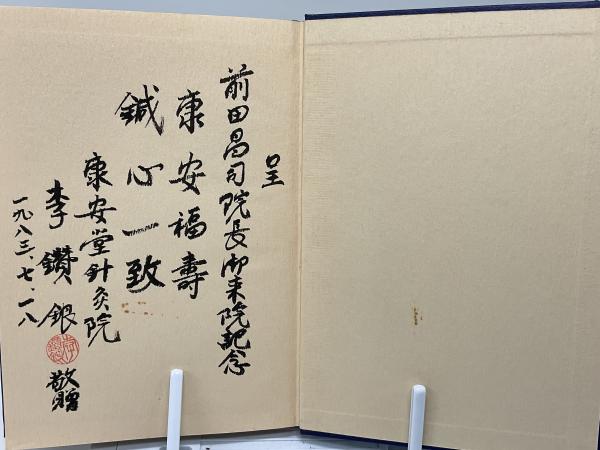 呈
前田昌司院長御来院記念
康安福壽
鍼心一致
康安堂針灸院
李鑽銀 敬贈
一九八三、七、一八